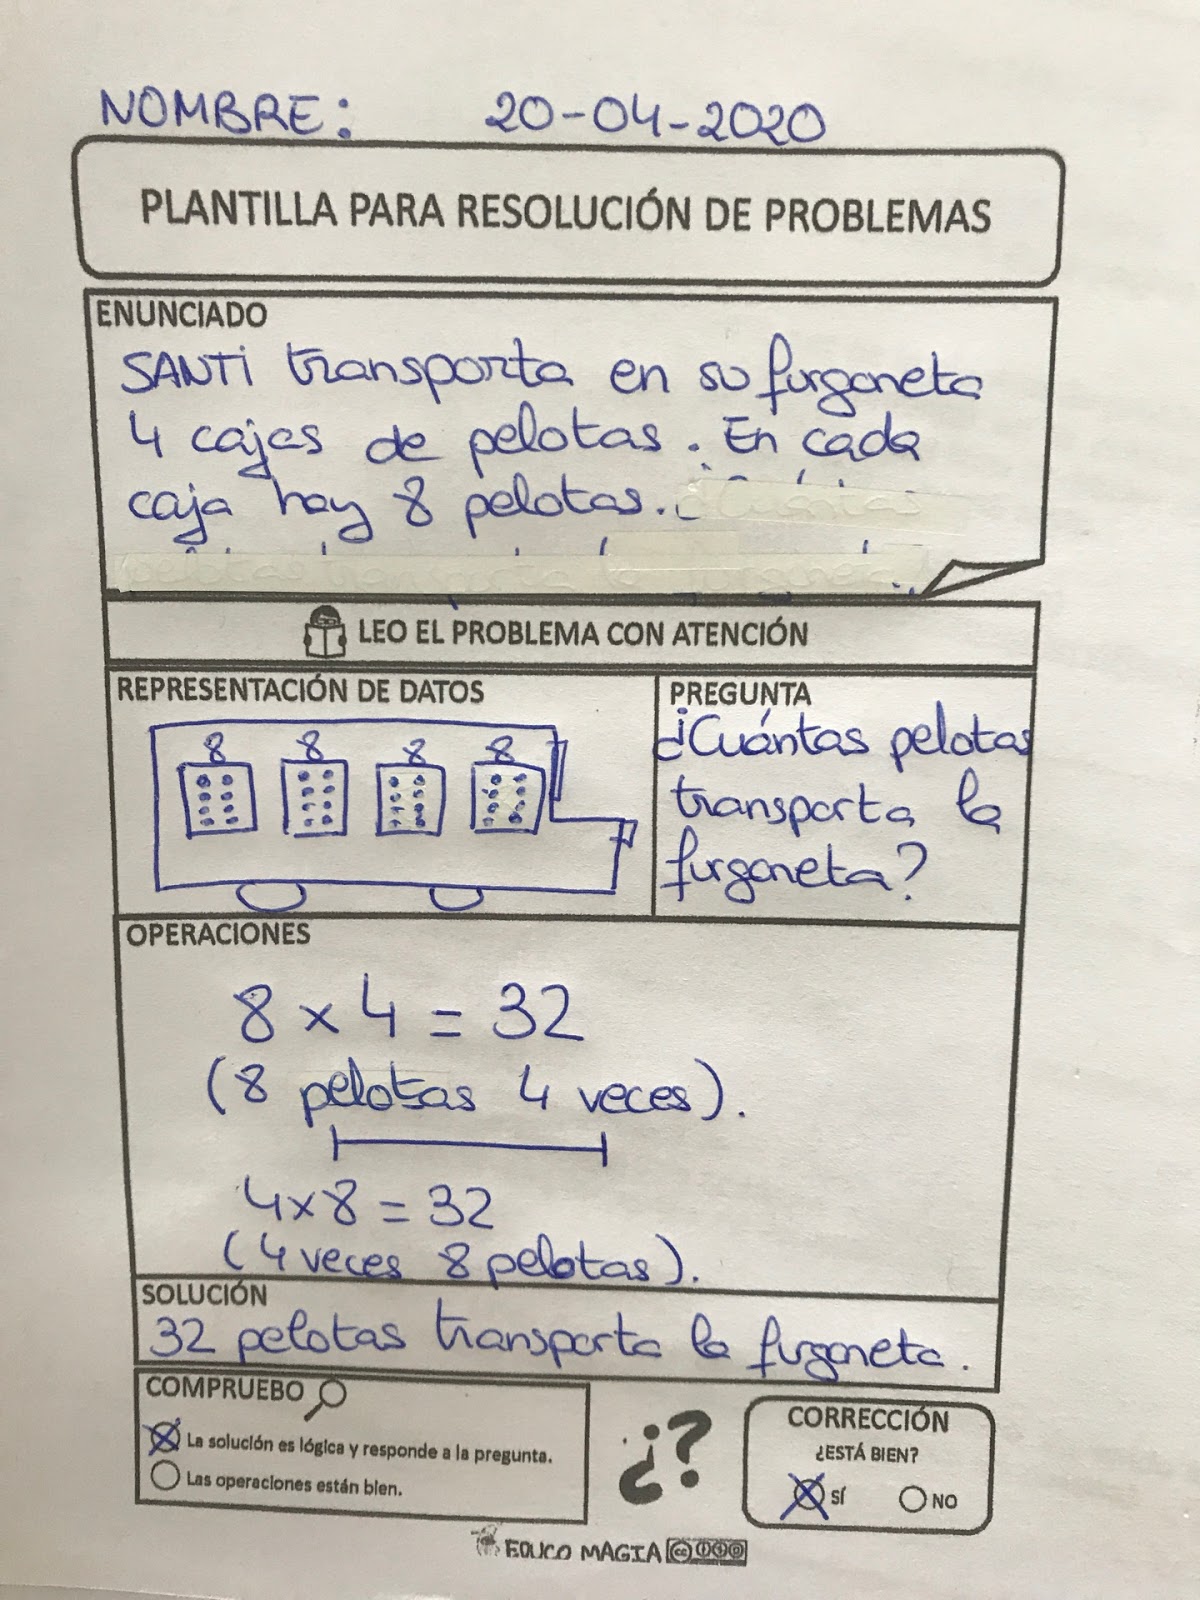 NOMBRE: 20-04-2020
PLANTILLA PARA RESOLUCIÓN DE PROBLEMAS
ENUNCIADO
SANTI transporta en su furgoneta
4 cajas de pelotas. En cada
caja hay 8 pelotas. ¿Cuántas
pelotas transporta la furgoneta?
LEO EL PROBLEMA CON ATENCIÓN
REPRESENTACIÓN DE DATOS
8 8 8 8
PREGUNTA
¿Cuántas pelotas
transporta la
furgoneta?
OPERACIONES
8 x 4 = 32
(8 pelotas 4 veces).
4x8 = 32
(4 veces 8 pelotas).
SOLUCIÓN
32 pelotas transporta la furgoneta.
COMPRUEBO
La solución es lógica y responde a la pregunta.
Las operaciones están bien.
¿?
CORRECCIÓN
¿ESTÁ BIEN?
SÍ NO
EDUCO MAGIA